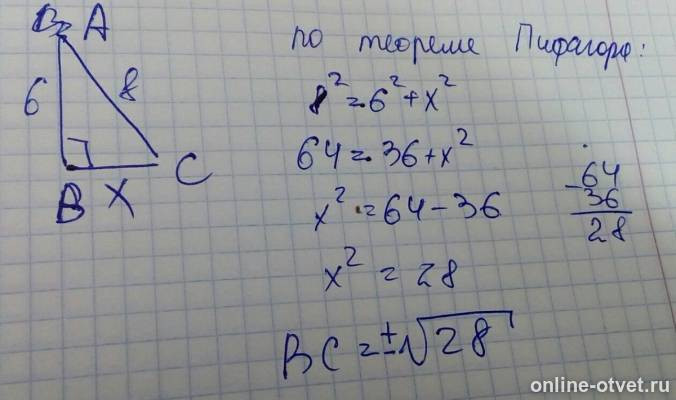 A
6
8
B
X
C
по теореме Пифагора:
8²=6²+x²
64=36+x²
x²=64-36
x²=28
BC=±√28
-64
36
28
online-otvet.ru